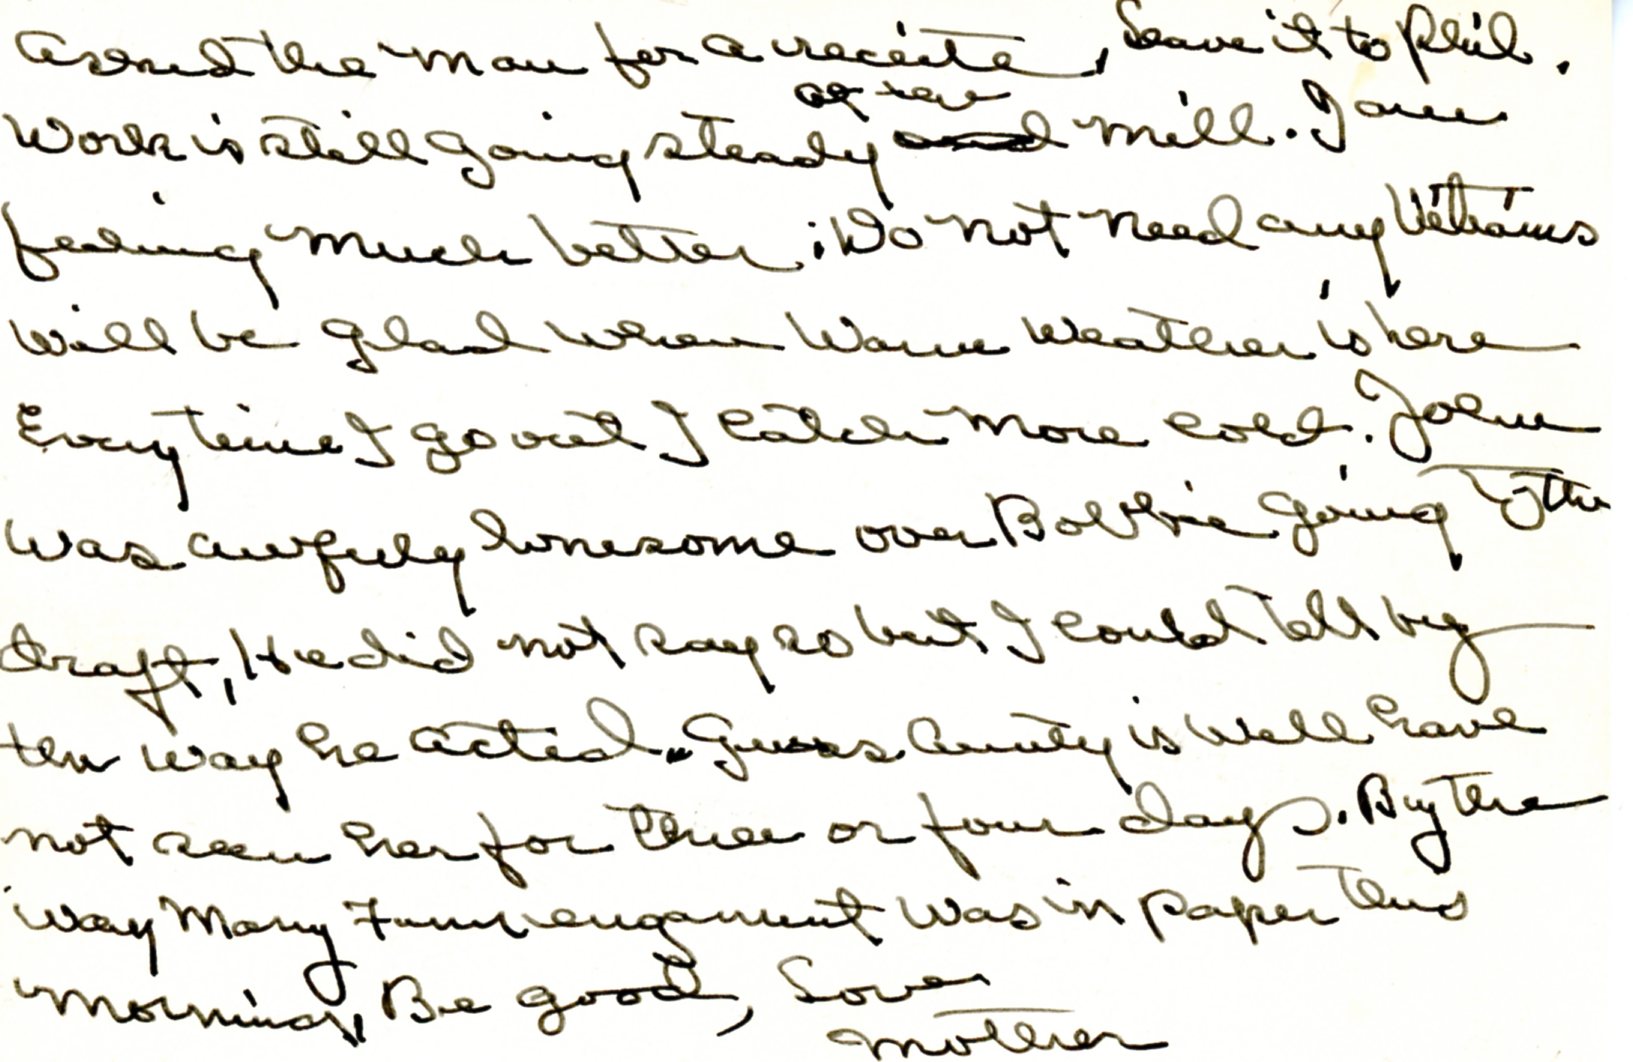 asked the man for a receite, Leave it to Phil.
Work is still going steady at mill. I am
feeling much better; Do not need any Vitiams
will be glad when warm weather is here
Every time I go out I catch more cold. John
was awfuly lonesome over Bobbie going to the
draft, He did not say so but I could tell by
the way he acted. Guess Aunty is well have
not seen her for three or four days. By the
way Mary engament was in paper this
morning, Be good, Love
Mother